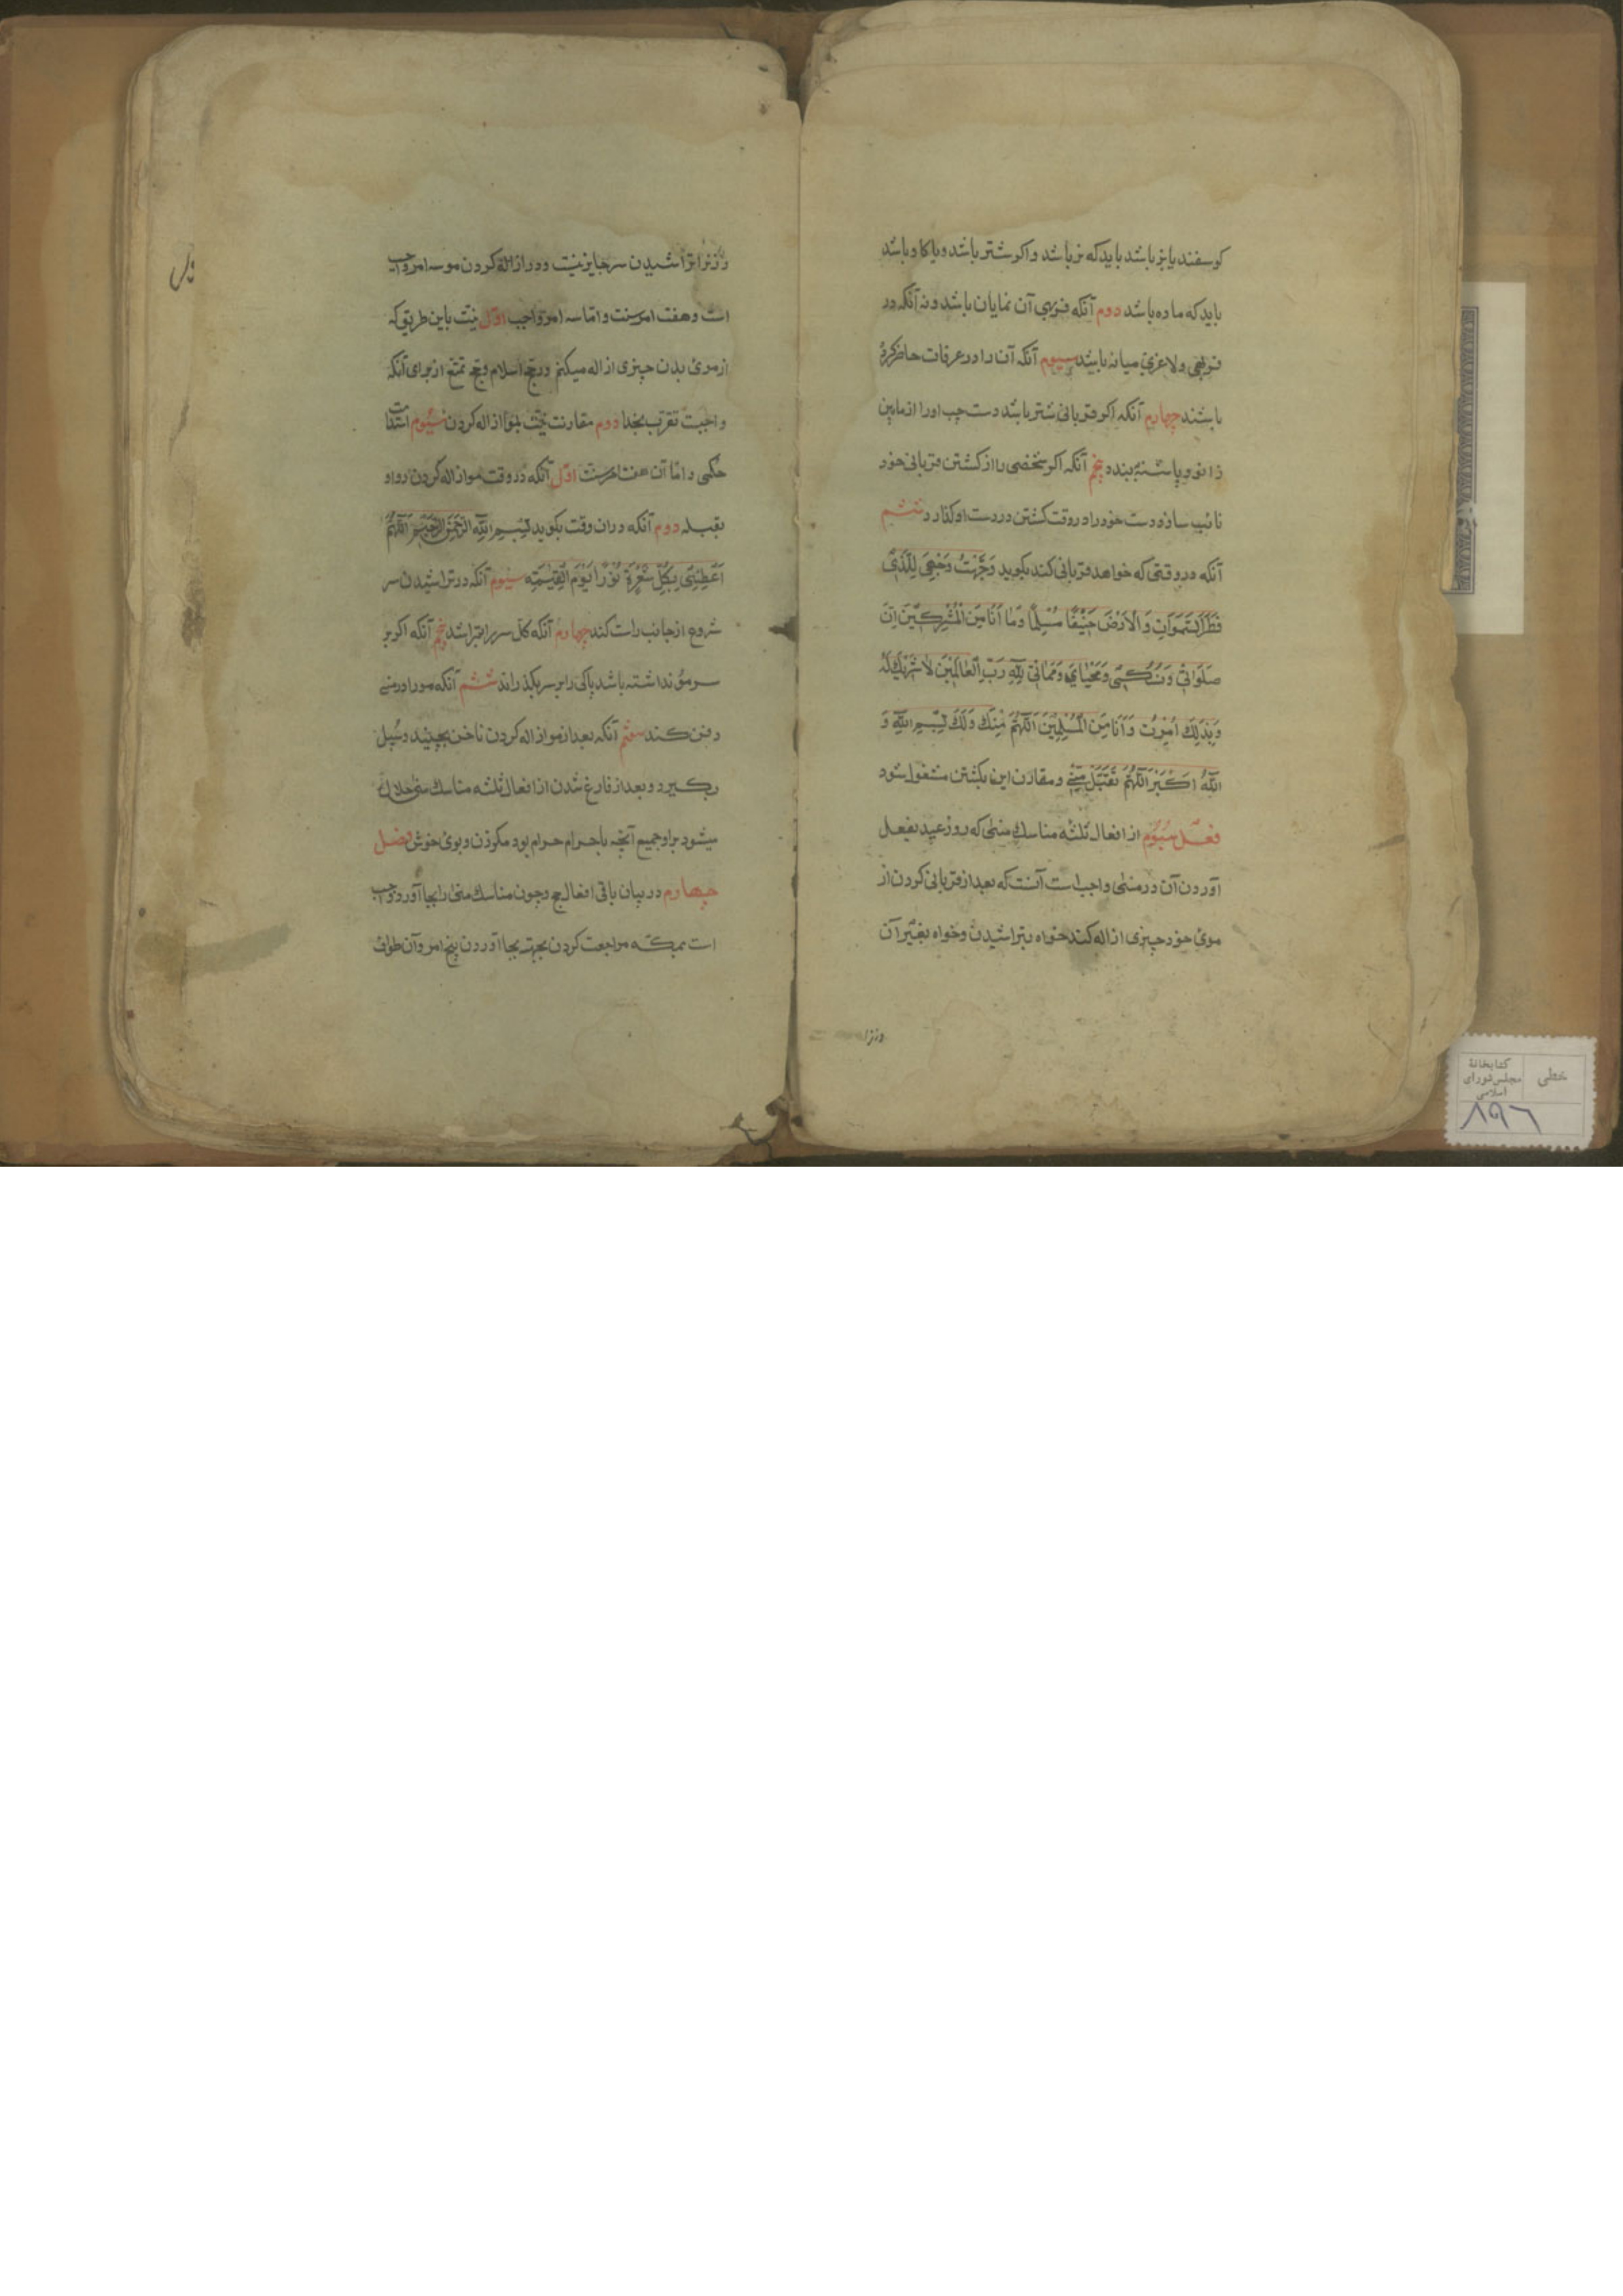 کوسفند یا بز باشد باید که نر باشد و اکر شتر باشد و یا کاو باشد
باید که ماده باشد دوم آنکه فربهی آن نمایان باشد و نه آنکه در
فربهی و لاغری میانه باشد سیوم آنکه آن را در عرفات حاضر کرده
باشند چهارم آنکه اکر قربانی شتر باشد دست چپ او را از مابین
زانو و پاشنه ببندد پنجم آنکه اکر شخصی را از کشتن قربانی خود
نائب سازد دست خود را در وقت کشتن در دست او کذارد ششم
آنکه در وقتی که خواهد قربانی کند بکوید وَجَّهْتُ وَجْهِيَ لِلَّذِي
فَطَرَ السَّمَوَاتِ وَالْأَرْضَ حَنِيفًا مُسْلِمًا وَمَا أَنَا مِنَ الْمُشْرِكِينَ اِنَّ
صَلَوَاتِي وَنُسُكِي وَمَحْيَايَ وَمَمَاتِي لِلَّهِ رَبِّ الْعَالَمِينَ لَا شَرِيكَ لَهُ
وَبِذَلِكَ اُمِرْتُ وَاَنَا مِنَ الْمُسْلِمِينَ اَللَّهُمَّ مِنْكَ وَلَكَ بِسْمِ اللَّهِ وَ
اللَّهُ اَكْبَرُ اَللَّهُمَّ تَقَبَّلْ مِنِّي و مقارن این بکشتن مشغول شود
فعل سیوم از افعال ثلثه مناسک منی که روز عید بفعل
آوردن آن در منی واجب است آنست که بعد از قربانی کردن از
موی خود چیزی ازاله کند خواه بتراشیدن و خواه بغیر آن
و زنرا
و زنرا تراشیدن سر جایز نیست و در ازاله کردن مو سه امر واجب
است و هفت امر سنت و اما سه امر واجب اول نیت باین طریق که
از موی بدن چیزی ازاله میکنم در حج اسلام حج تمتع از برای آنکه
واجبست تقرب بخدا دوم مقارنت نیت بمو ازاله کردن سیوم استدامت
حکمی و اما آن هفت امر سنت اول آنکه در وقت مو ازاله کردن رو او
بقبله دوم آنکه در ان وقت بکوید بِسْمِ اللَّهِ الرَّحْمَنِ الرَّحِيمِ اَللَّهُمَّ
اَعْطِنِي بِكُلِّ شَعْرَةٍ نُورًا يَوْمَ الْقِيمَةِ سیوم آنکه در تراشیدن سر
شروع از جانب راست کند چهارم آنکه کل سر را بتراشد پنجم آنکه اکر بر
سر مو نداشته باشد پاکی را بر سر بکذراند ششم آنکه مو را در منی
دفن کند هفتم آنکه بعد از مو ازاله کردن ناخن بچیند و سبیل
بکیرد و بعد از فارغ شدن از افعال ثلثه مناسک منی حلال
میشود بر او جمیع آنچه باحرام حرام بود مکر زن و بوی خوش فصل
چهارم در بیان باقی افعال حج و چون مناسک منی را بجا آورد واجب
است بمکه مراجعت کردن بجهة بجا آوردن پنج امر و آن طواف
خطی
کتابخانهٔ
مجلس شورای
اسلامی
۸۹۶